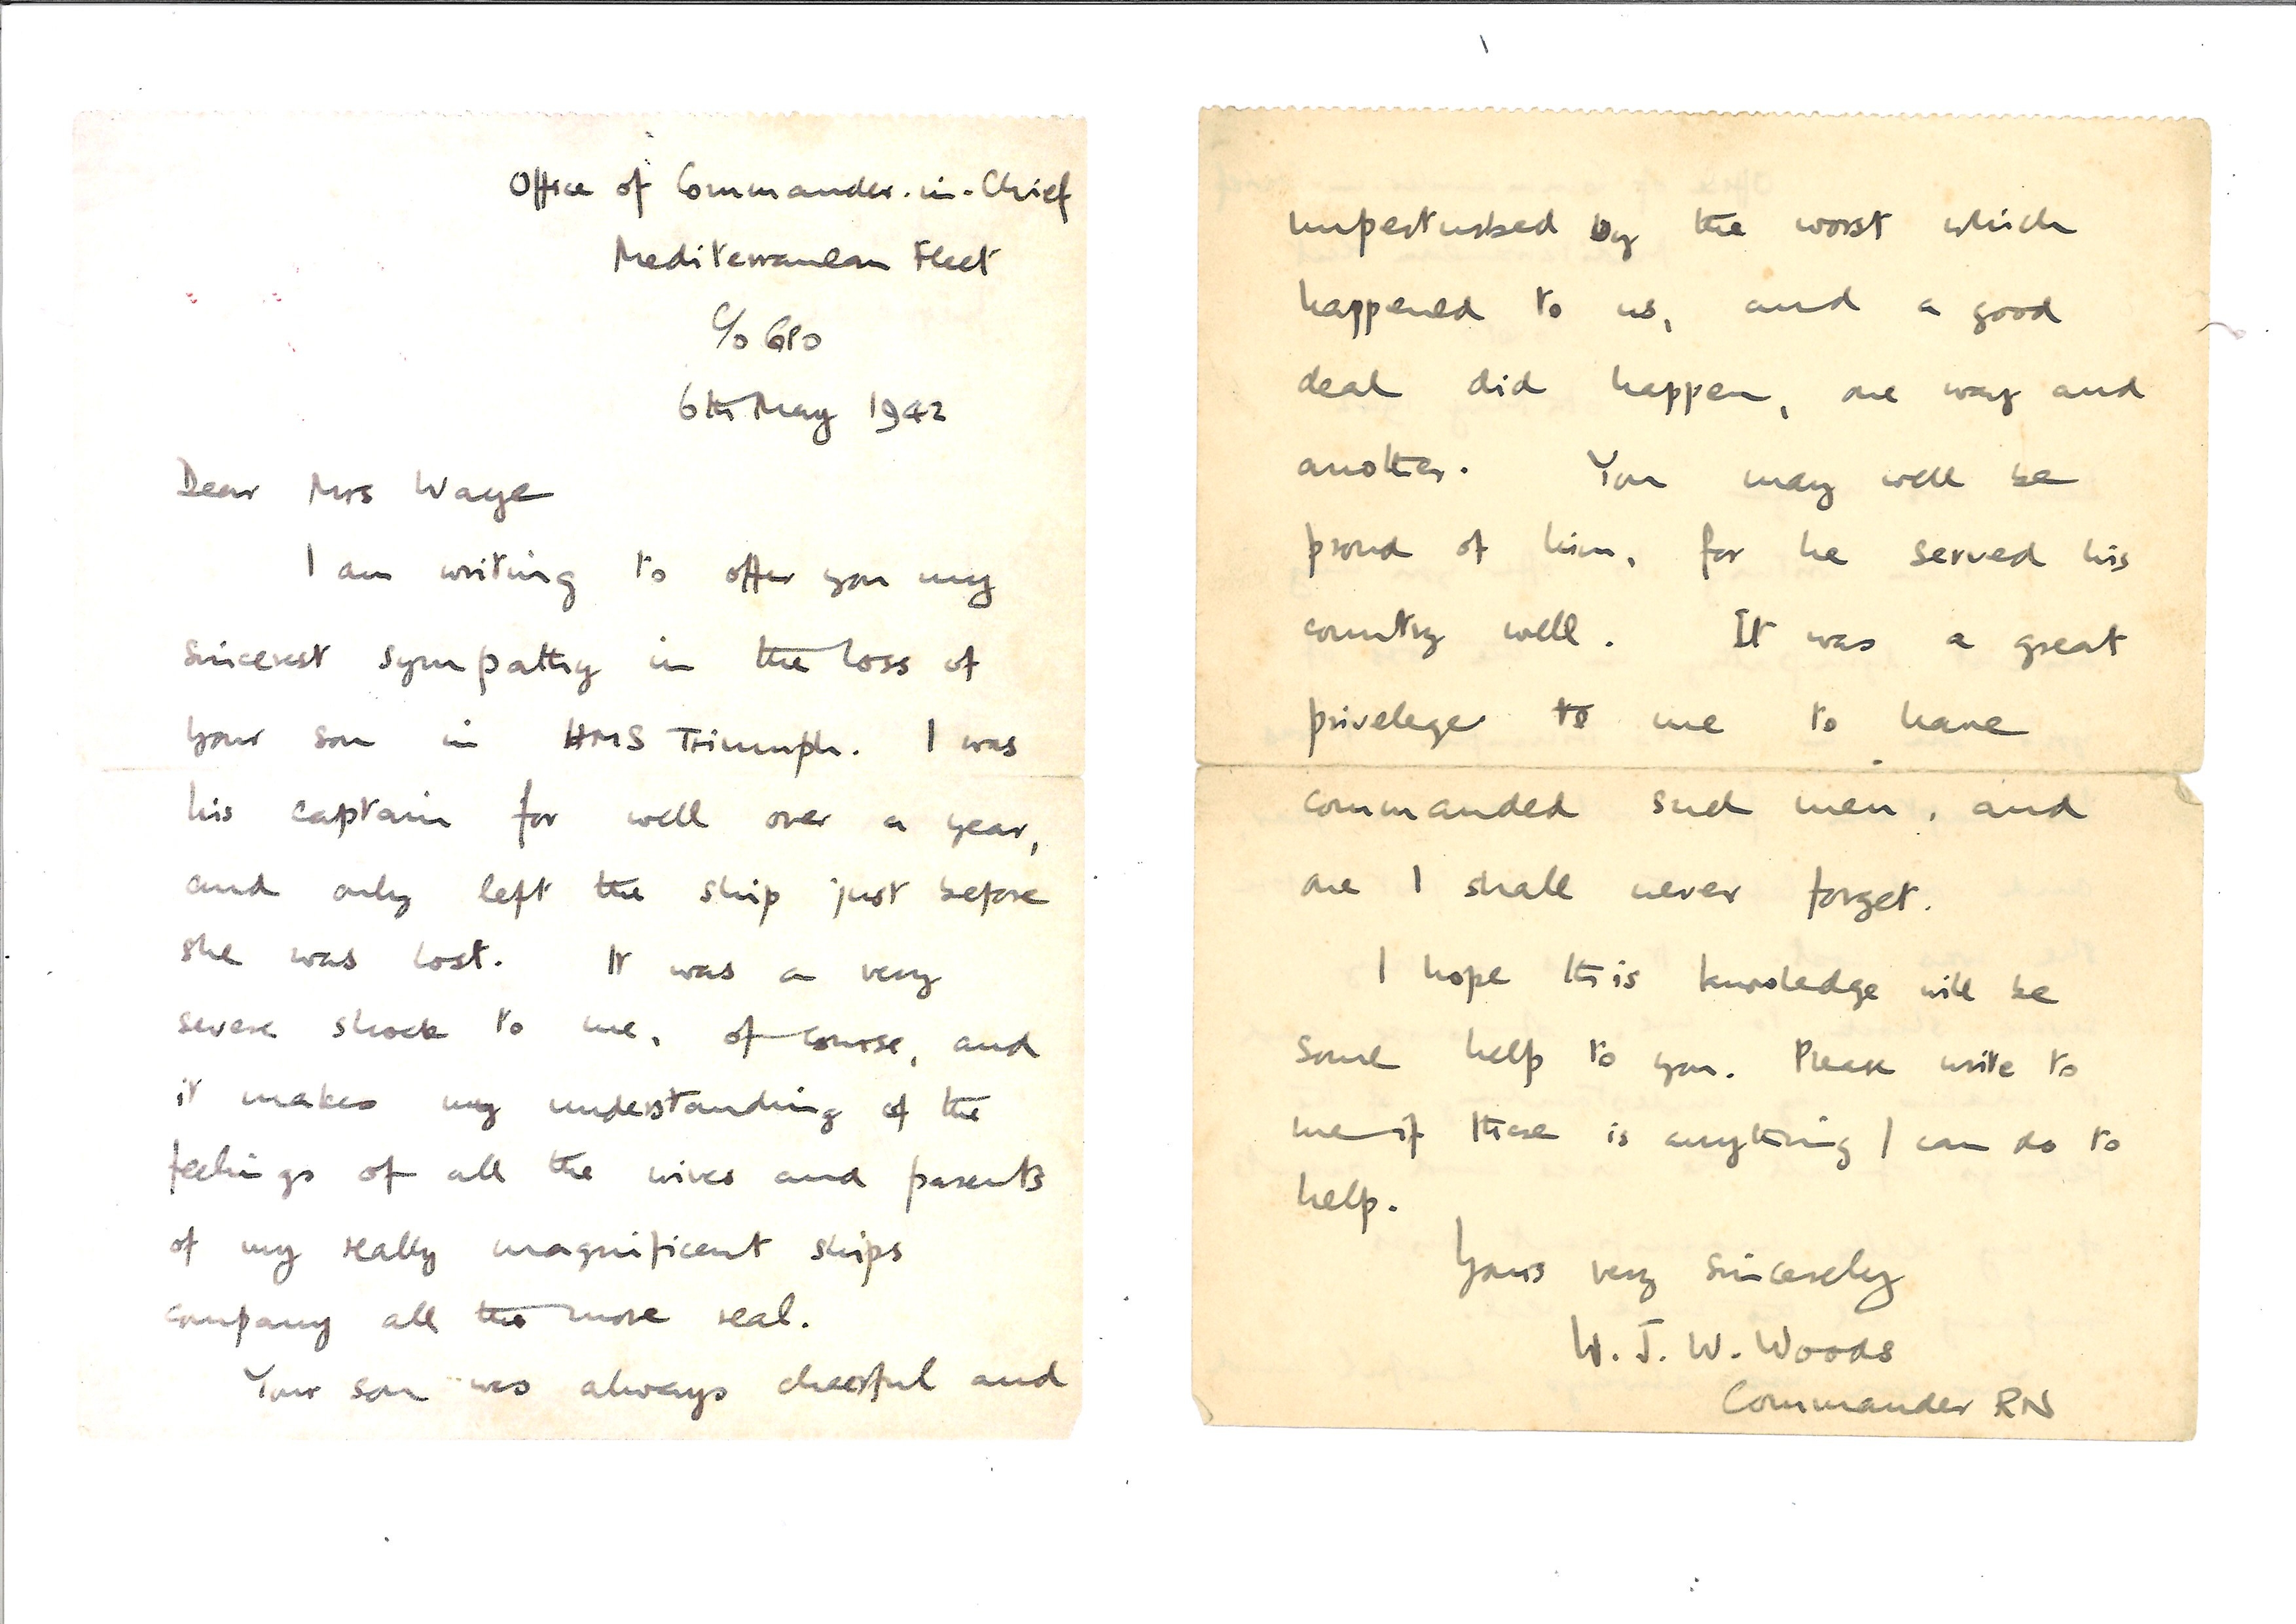 Office of Commander-in-Chief
Mediterranean Fleet
C/o GPO
6th May 1942
Dear Mrs Waye
I am writing to offer you my
sincerest sympathy in the loss of
your son in HMS Triumph. I was
his captain for well over a year,
and only left the ship just before
she was lost. It was a very
severe shock to me, of course, and
it makes my understanding of the
feelings of all the wives and parents
of my really magnificent ships
company all the more real.
Your son was always cheerful and
unperturbed by the worst which
happened to us, and a good
deal did happen, one way and
another. You may well be
proud of him, for he served his
country well. It was a great
privelege to me to have
commanded such men, and
one I shall never forget.
I hope this knowledge will be
some help to you. Please write to
me if there is anything I can do to
help.
Yours very sincerely
W. J. W. Woods
Commander RN